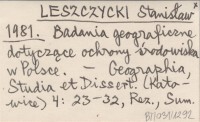 LESZCZYCKI Stanisław
1981. Badania geograficzne
dotyczące ochrony środowiska
w Polsce. — Geographia,
Studia et Dissert. (Kato-
wice) 4: 23-32, Rez., Sum.